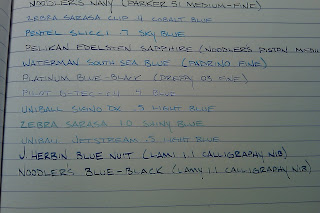 NOODLER'S NAVY (PARKER 51 MEDIUM-FINE)
ZEBRA SARASA CLIP .4 COBALT BLUE
PENTEL SLICCI .7 SKY BLUE
PELIKAN EDELSTEIN SAPPHIRE (NOODLER'S PISTON MEDIUM
WATERMAN SOUTH SEA BLUE (PADRINO FINE)
PLATINUM BLUE-BLACK (PREFTY 03 FINE)
PILOT BLUE
UNIBALL SIGNO DX .5 LIGHT BLUE
ZEBRA SARASA 1.0 SHINY BLUE
UNIBALL JETSTREAM .5 LIGHT BLUE
J. HERBIN BLUE NUIT (LAMY 1.1 CALLIGRAPHY NIB)
NOODLER'S BLUE-BLACK (LAMY 1.1 CALLIGRAPHY NIB)